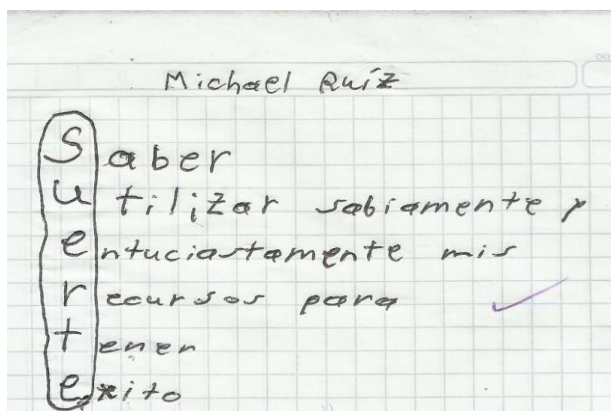 Michael Ruíz
Saber
utilizar sabiamente y
entuciastamente mis
recursos para
tener
exito